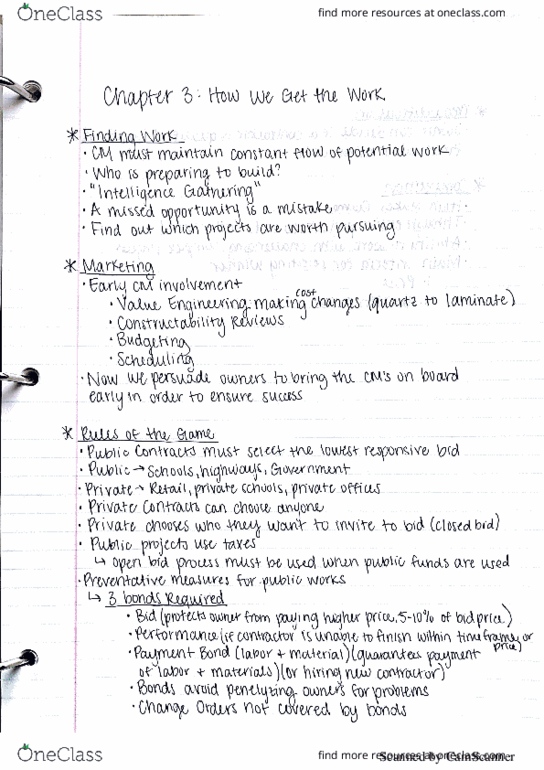 OneClass
find more resources at oneclass.com
Chapter 3: How We Get the Work
* Finding Work
· CM must maintain constant flow of potential work
· Who is preparing to build?
· "Intelligence Gathering"
· A missed opportunity is a mistake
· Find out which projects are worth pursuing
* Marketing
· Early CM involvement
cost
· Value Engineering: making changes (quartz to laminate)
· Constructability Reviews
· Budgeting
· Scheduling
· Now we persuade owners to bring the CM's on board
early in order to ensure success
* Rules of the Game
· Public Contracts must select the lowest responsive bid
· Public → Schools, highways, Government
· Private → Retail, private schools, private offices
· Private Contracts can choose anyone
· Private chooses who they want to invite to bid (closed bid)
· Public projects use taxes
↳ open bid process must be used when public funds are used
· Preventative measures for public works
↳ 3 bonds Required
· Bid (protects owner from paying higher price, 5-10% of bid price)
· Performance (if contractor is unable to finish within time frame, or
price)
· Payment Bond (labor + material) (guarantees payment
of labor + materials) (or hiring new contractor)
· Bonds avoid penelyzing owners for problems
· Change Orders not covered by bonds
OneClass
find more resources at oneclass.com
Scanned by CamScanner